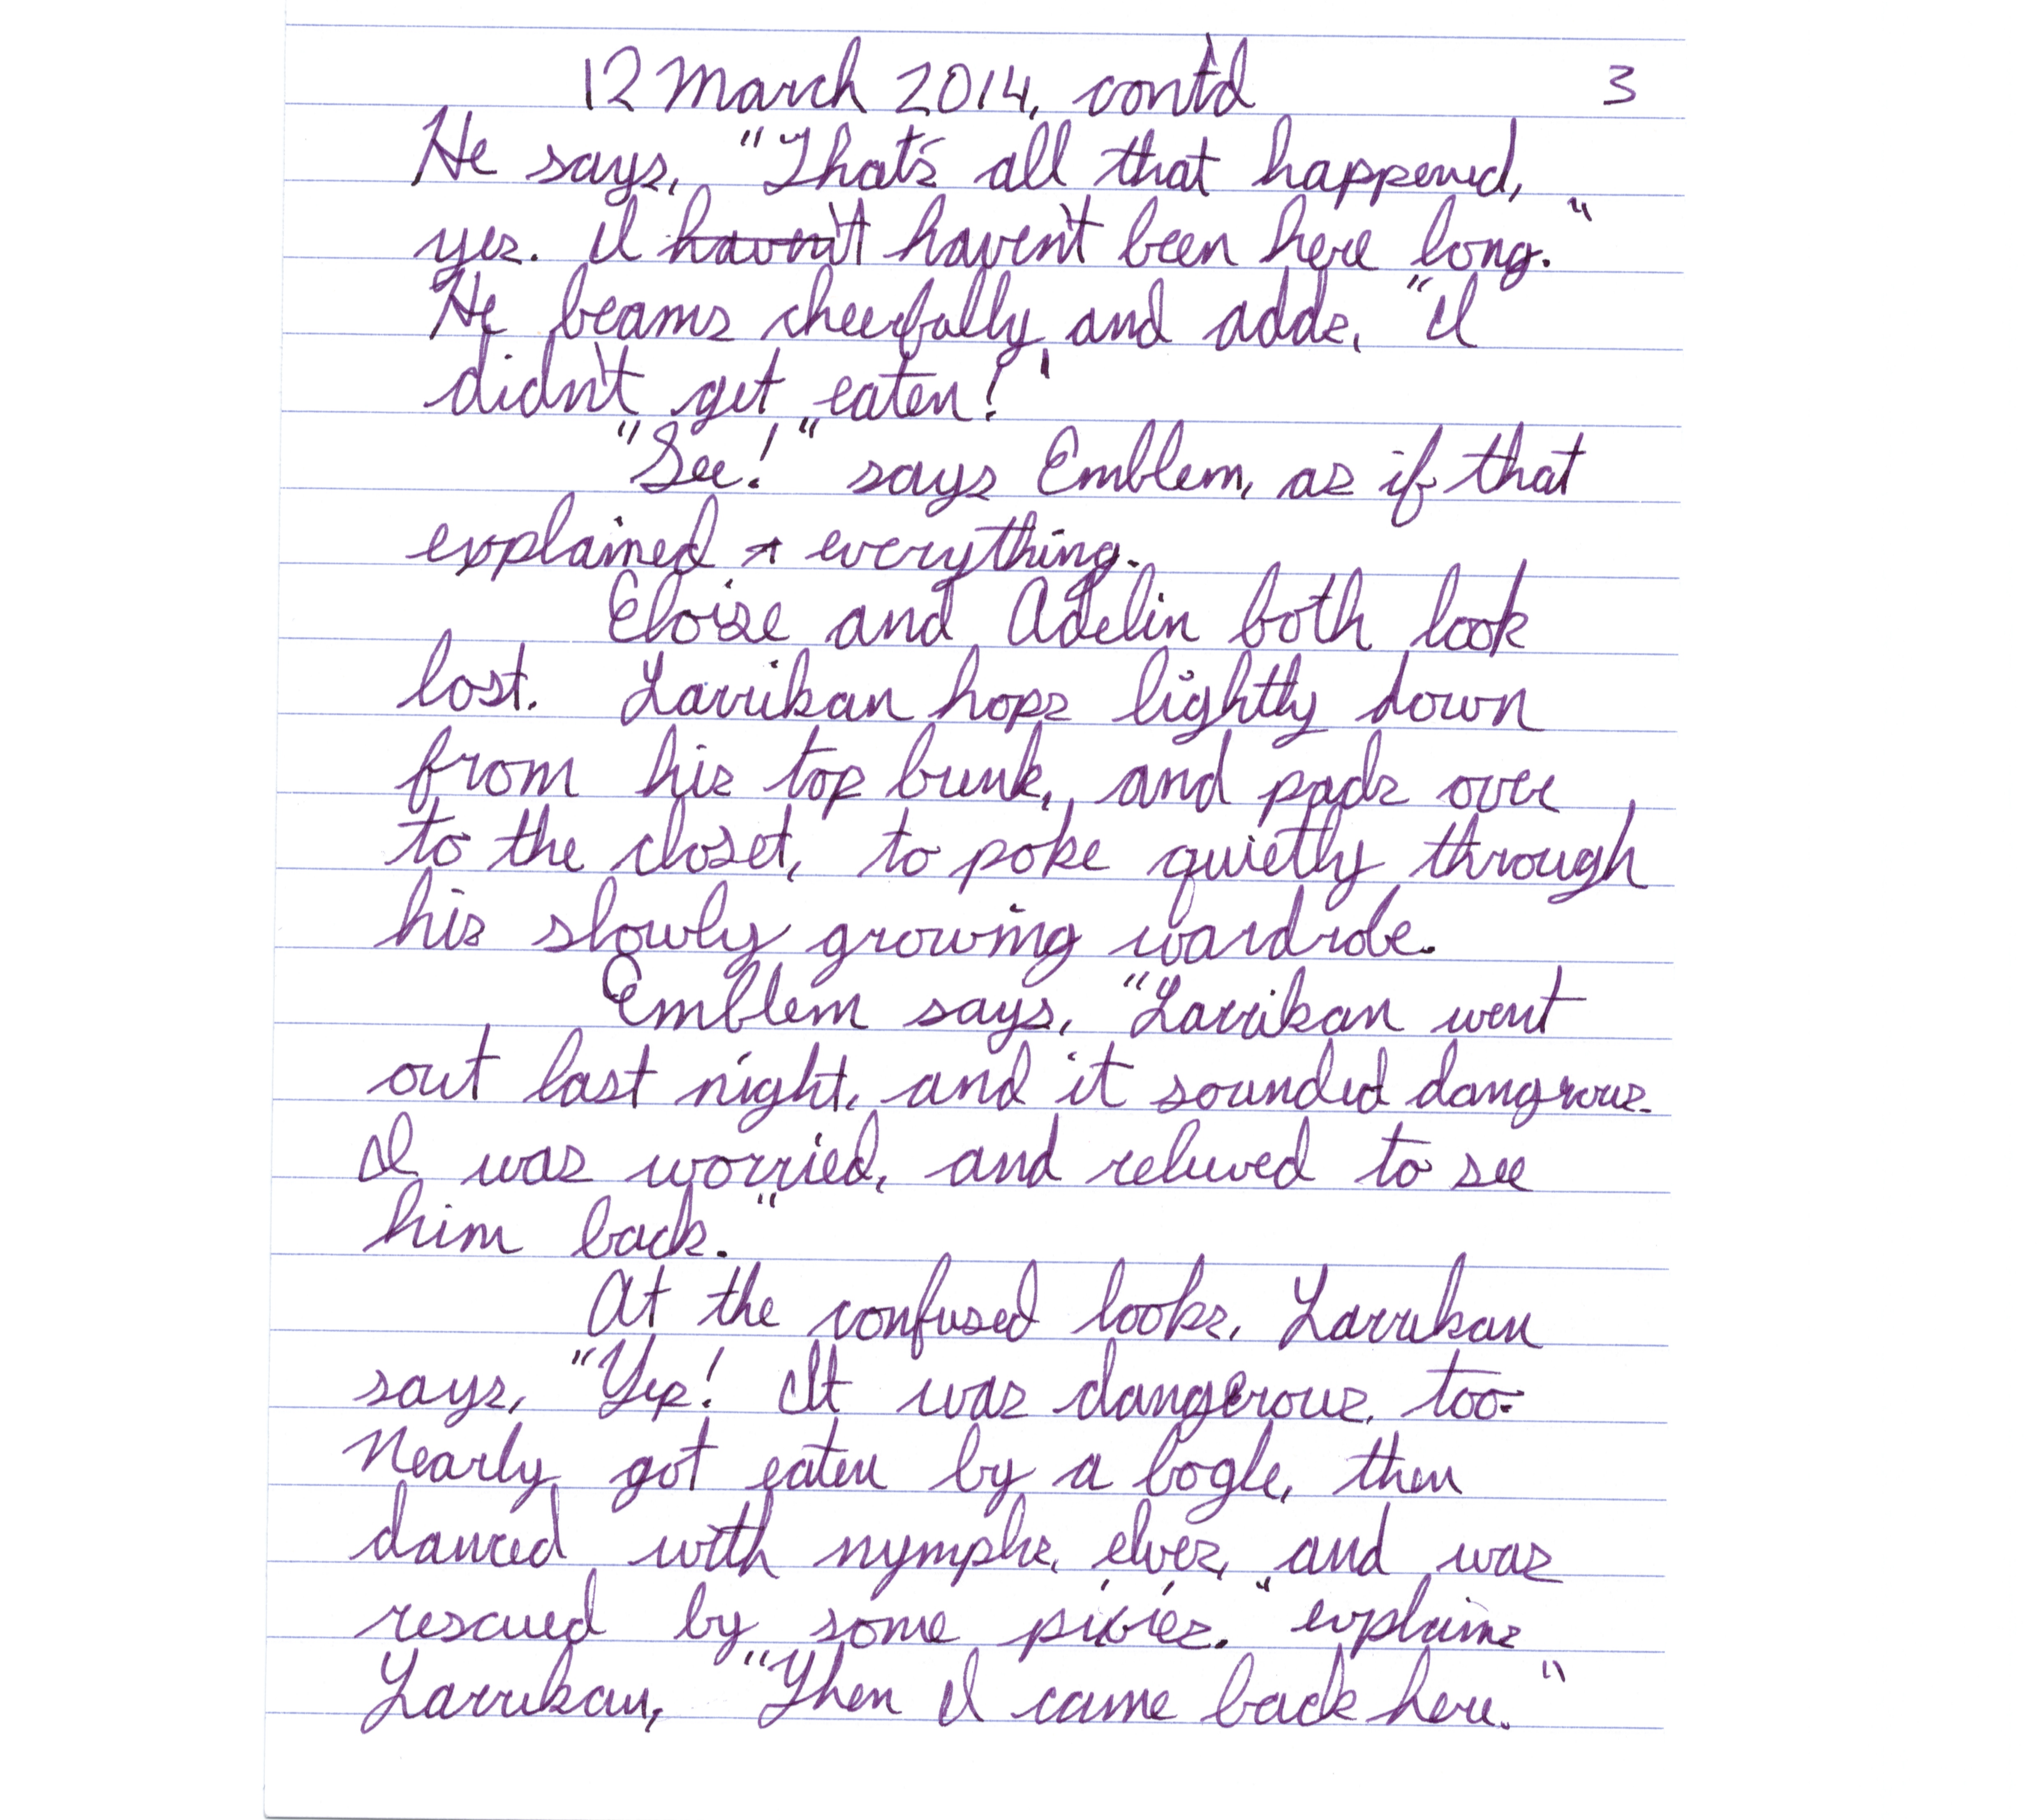 12 March 2014, cont'd 3
He says, "That's all that happened,
yes. I havn't haven't been here long."
He beams cheerfully and adds, "I
didn't get eaten!'
"See!" says Emblem, as if that
explained everything.
Eloise and Adelin both look
lost. Larrikan hops lightly down
from his top bunk, and pads over
to the closet, to poke quietly through
his slowly growing wardrobe.
Emblem says, "Larrikan went
out last night, and it sounded dangrous.
I was worried, and relieved to see
him back."
At the confused looks, Larrikan
says, "Yep! It was dangerous, too.
Nearly got eaten by a bogle, then
danced with nymphs, elves, and was
rescued by some pixies." explains
Larrikan, "Then I came back here."